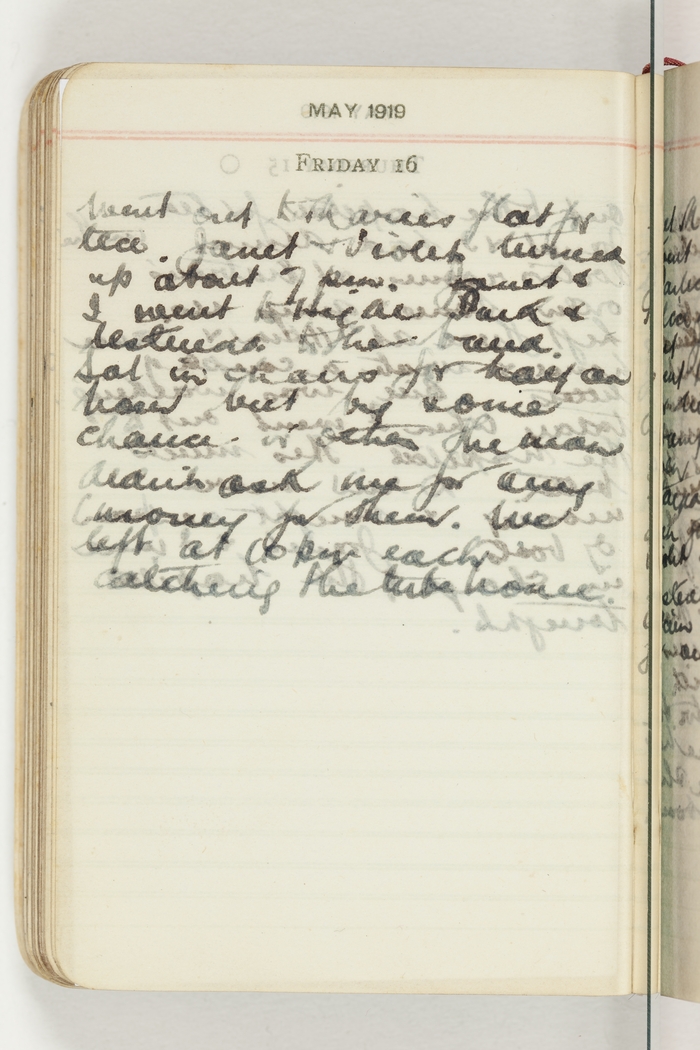 MAY 1919
FRIDAY 16
Went out to Maries flat for
tea. Janet & Violet turned
up about 7 pm. Janet &
I went to Hyde Park &
listened to the band.
Sat in chairs for half an
hour but by some
chance or other the man
didn't ask me for any
money for them. We
left at 10 pm each
catching the tube home.